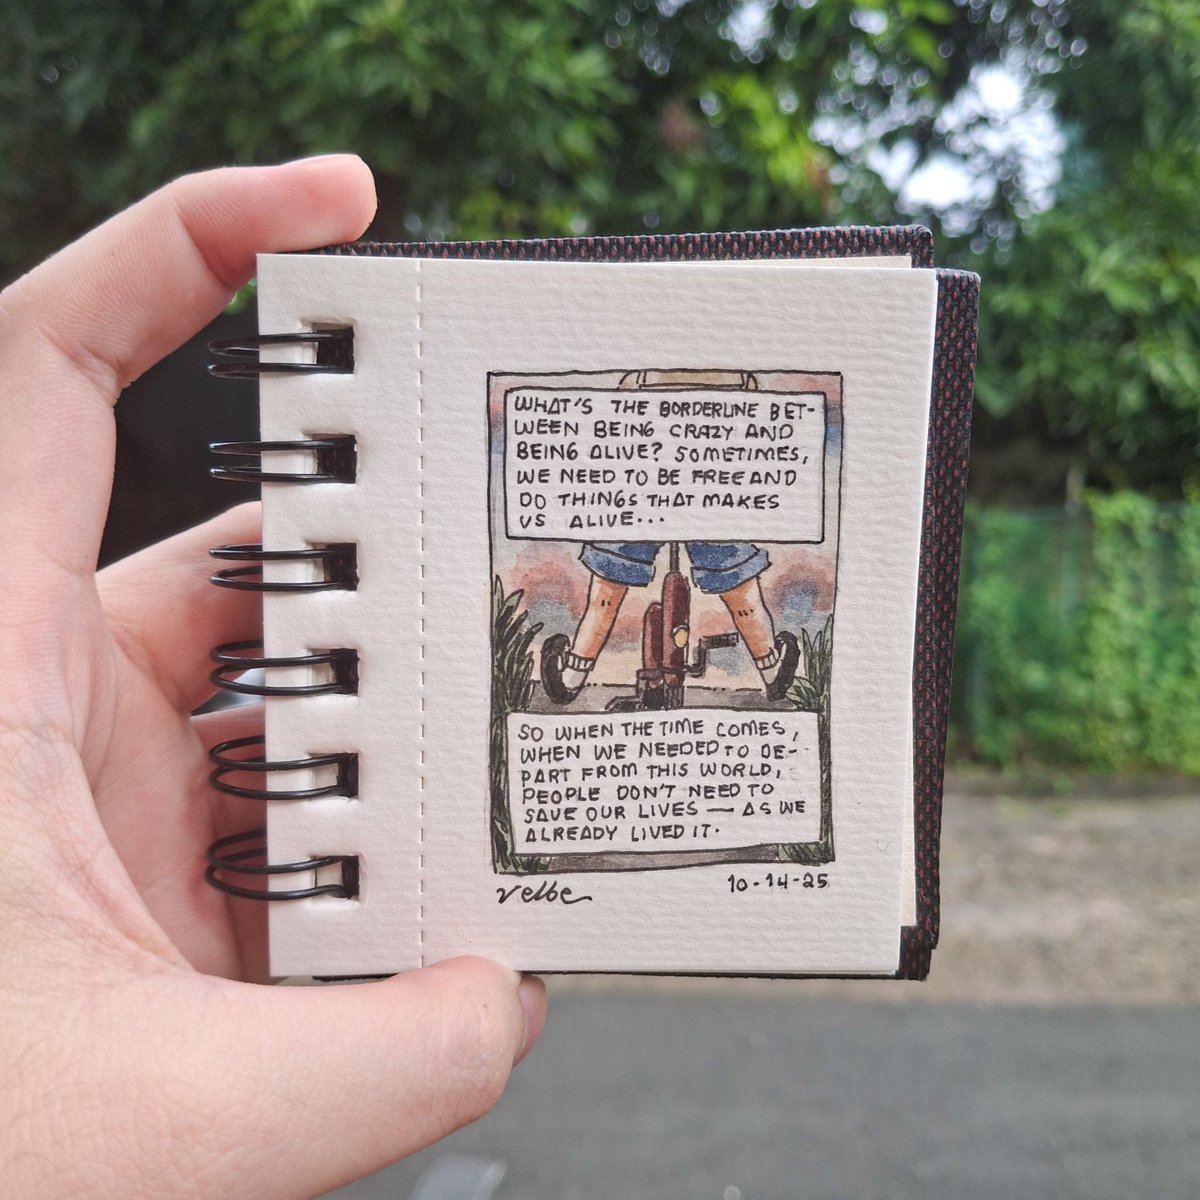 WHAT'S THE BORDERLINE BET-
WEEN BEING CRAZY AND
BEING ALIVE? SOMETIMES,
WE NEED TO BE FREE AND
DO THINGS THAT MAKES
US ALIVE...
SO WHEN THE TIME COMES,
WHEN WE NEEDED TO DE-
PART FROM THIS WORLD,
PEOPLE DON'T NEED TO
SAVE OUR LIVES — AS WE
ALREADY LIVED IT.
velbe
10-14-25